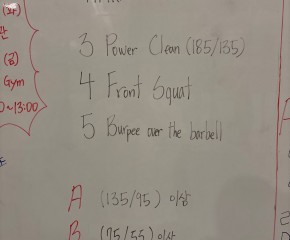 (화)
(금)
Gym
0~13:00
3 Power Clean (185/135)
4 Front Squat
5 Burpee over the barbell
A (135/95) 이상
B (75/55) 이상